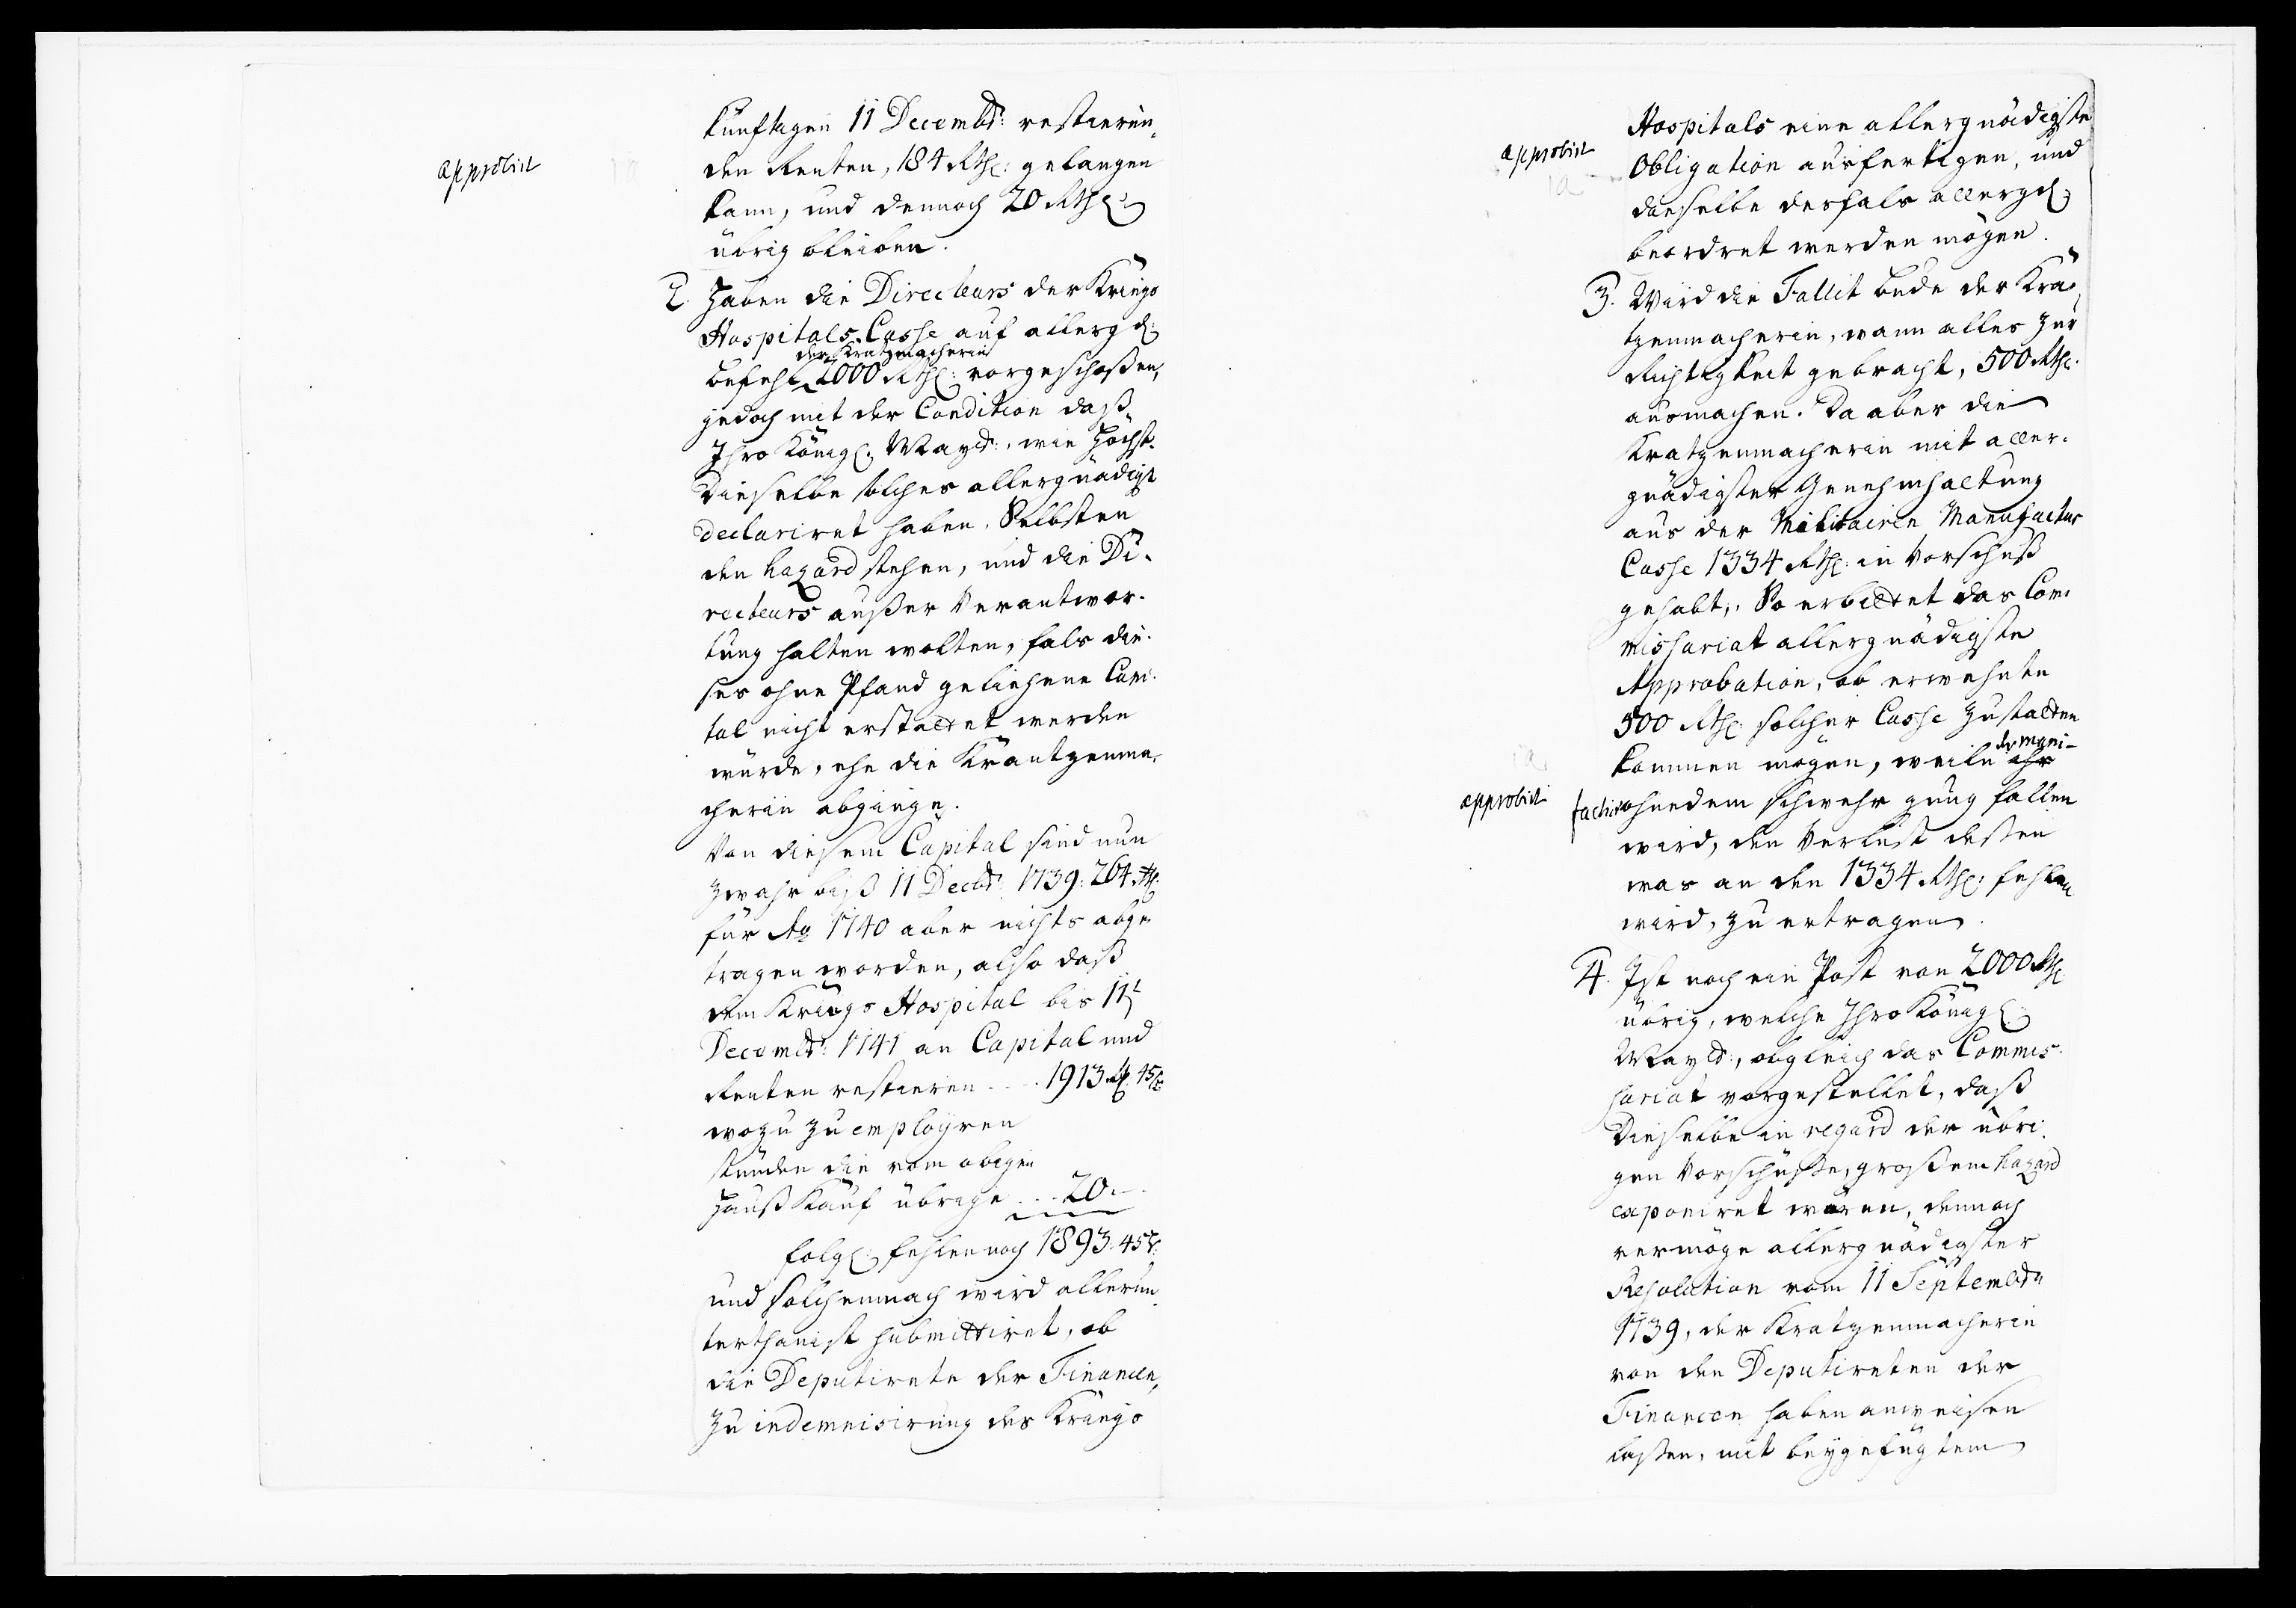 künfftigen 11 Decembr: restieren-
approbirt
den Renten, 184 Rthl: gelangen
kann, und dennoch 20 Rthl:
übrig bleiben.
2. Haben die Directeurs der Kriegs
Hospitals Casse auf allergd:
der Kratzmacherin
befehl 2000 Rthl: vorgeschoßen,
jedoch mit der Condition daß
Ihro Königl: Mayt:, wie höchst-
Dieselbe solches allergnädigst
declariret haben, Selbsten
den hazard stehen, und die Di-
recteurs außer Verantwor-
tung halten wolten, fals die-
ses ohne Pfand geliehene Capi-
tal nicht erstattet werden
würde, ehe die Krautzenma-
cherin abginge.
Von diesem Capital sind nun
zwahr biß 11 Decbr: 1739: 264 Rthl:
für Ao 1740 aber nichts abge-
tragen worden, also daß
dem Kriegs Hospital bis 11t
Decembr: 1741 an Capital und
Renten restieren .... 1913 Rthl. 45 ß
wozu zu employren
stünden die vom obigen
Hauß Kauf übrige ... 20.-
folgl: fehlen noch 1893. 45 ß:
und solchemnach wird allerun-
terthänigst submittiret, ob
die Deputirete der Financen,
zu indemnisirung des Kriegs
Hospitals eine allergnädigste
approbirt
Obligation ausfertigen, und
dieselbe desfals allergd:
beordret werden mögen.
3. Wird die Fallit bude der Kra-
tzenmacherin, wann alles zur
Richtigkeit gebracht, 500 Rthl:
ausmachen. Da aber die
Kratzenmacherin mit aller-
gnädigster Genehmhaltung
aus der Militairen Manufactur
Casse 1334 Rthl: in Vorschuß
gehabt; So erbittet das Com-
missariat allergnädigste
Approbation, ob erwehnte
500 Rthl: solcher Casse zustatten
der Manu-
kommen mögen, weiln ihr
approbirt
factur ohnedem schwehr gnug fallen
wird, den Verlust deßen
was an den 1334 Rthl: fehlen
wird, zu ertragen.
4. Ist noch ein Post von 2000 Rthl:
übrig, welche Ihro Königl:
Mayt:, obgleich das Commis-
sariat vorgestellet, daß
Dieselbe in regard der übri-
gen Vorschüße, großem hazard
exponiret wären, dennoch
vermöge allergnädigster
Resolution vom 11 Septembr:
1739, der Kratzenmacherin
von den Deputireten der
Financen haben anweisen
laßen, mit beygefügtem